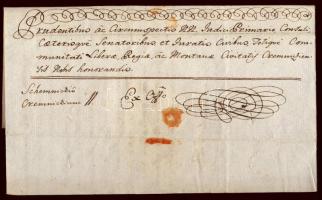 Prudentibus ac Circumspectis NN. Judici Primario Consuli
Caeterisque Senatoribus et Juratis Civibus Totique Com=
munitati Liberae Regiae ac Montanae Civitatis Cremniczien=
sis honorandis
Schemniczio
Cremniczium //
Ex Offo